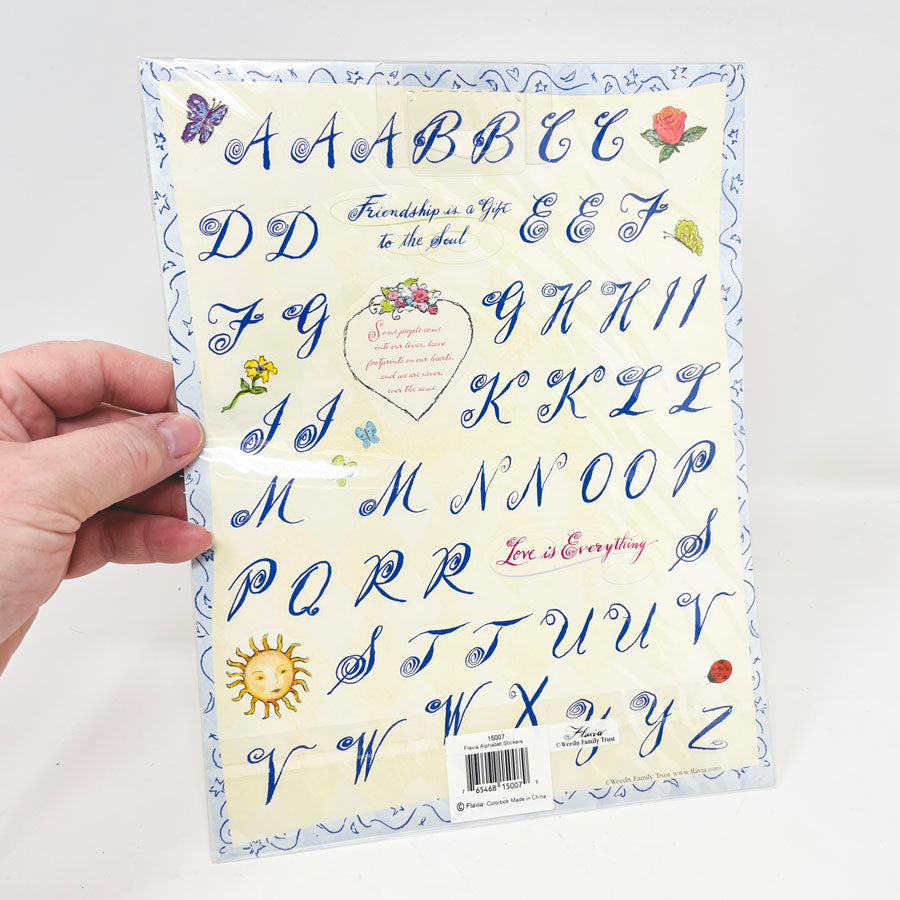 A A A B B C C
D D
Friendship is a Gift
to the Soul
E E F
F G
Some people come
into our lives, leave
footprints on our hearts,
and we are never,
ever the same.
G H H I I
J J
K K L L
M M N N O O P
P Q R R
Love is Everything
S
S T T U U V
V W W X Y Y Z
15007
Flavia Alphabet Stickers
7 65468 15007 9
© Flavia - Colorbok Made in China
Flavia
©Weedn Family Trust
©Weedn Family Trust www.flavia.com